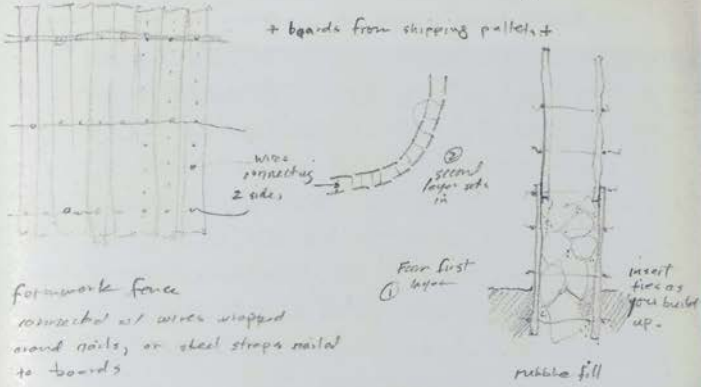 + boards from shipping pallets +
wires
connecting
2 sides
②
second
layer sets
in
① first
layer
insert
ties as
you build
up.
formwork fence
connected w/ wires wrapped
around nails, or steel straps nailed
to boards
rubble fill